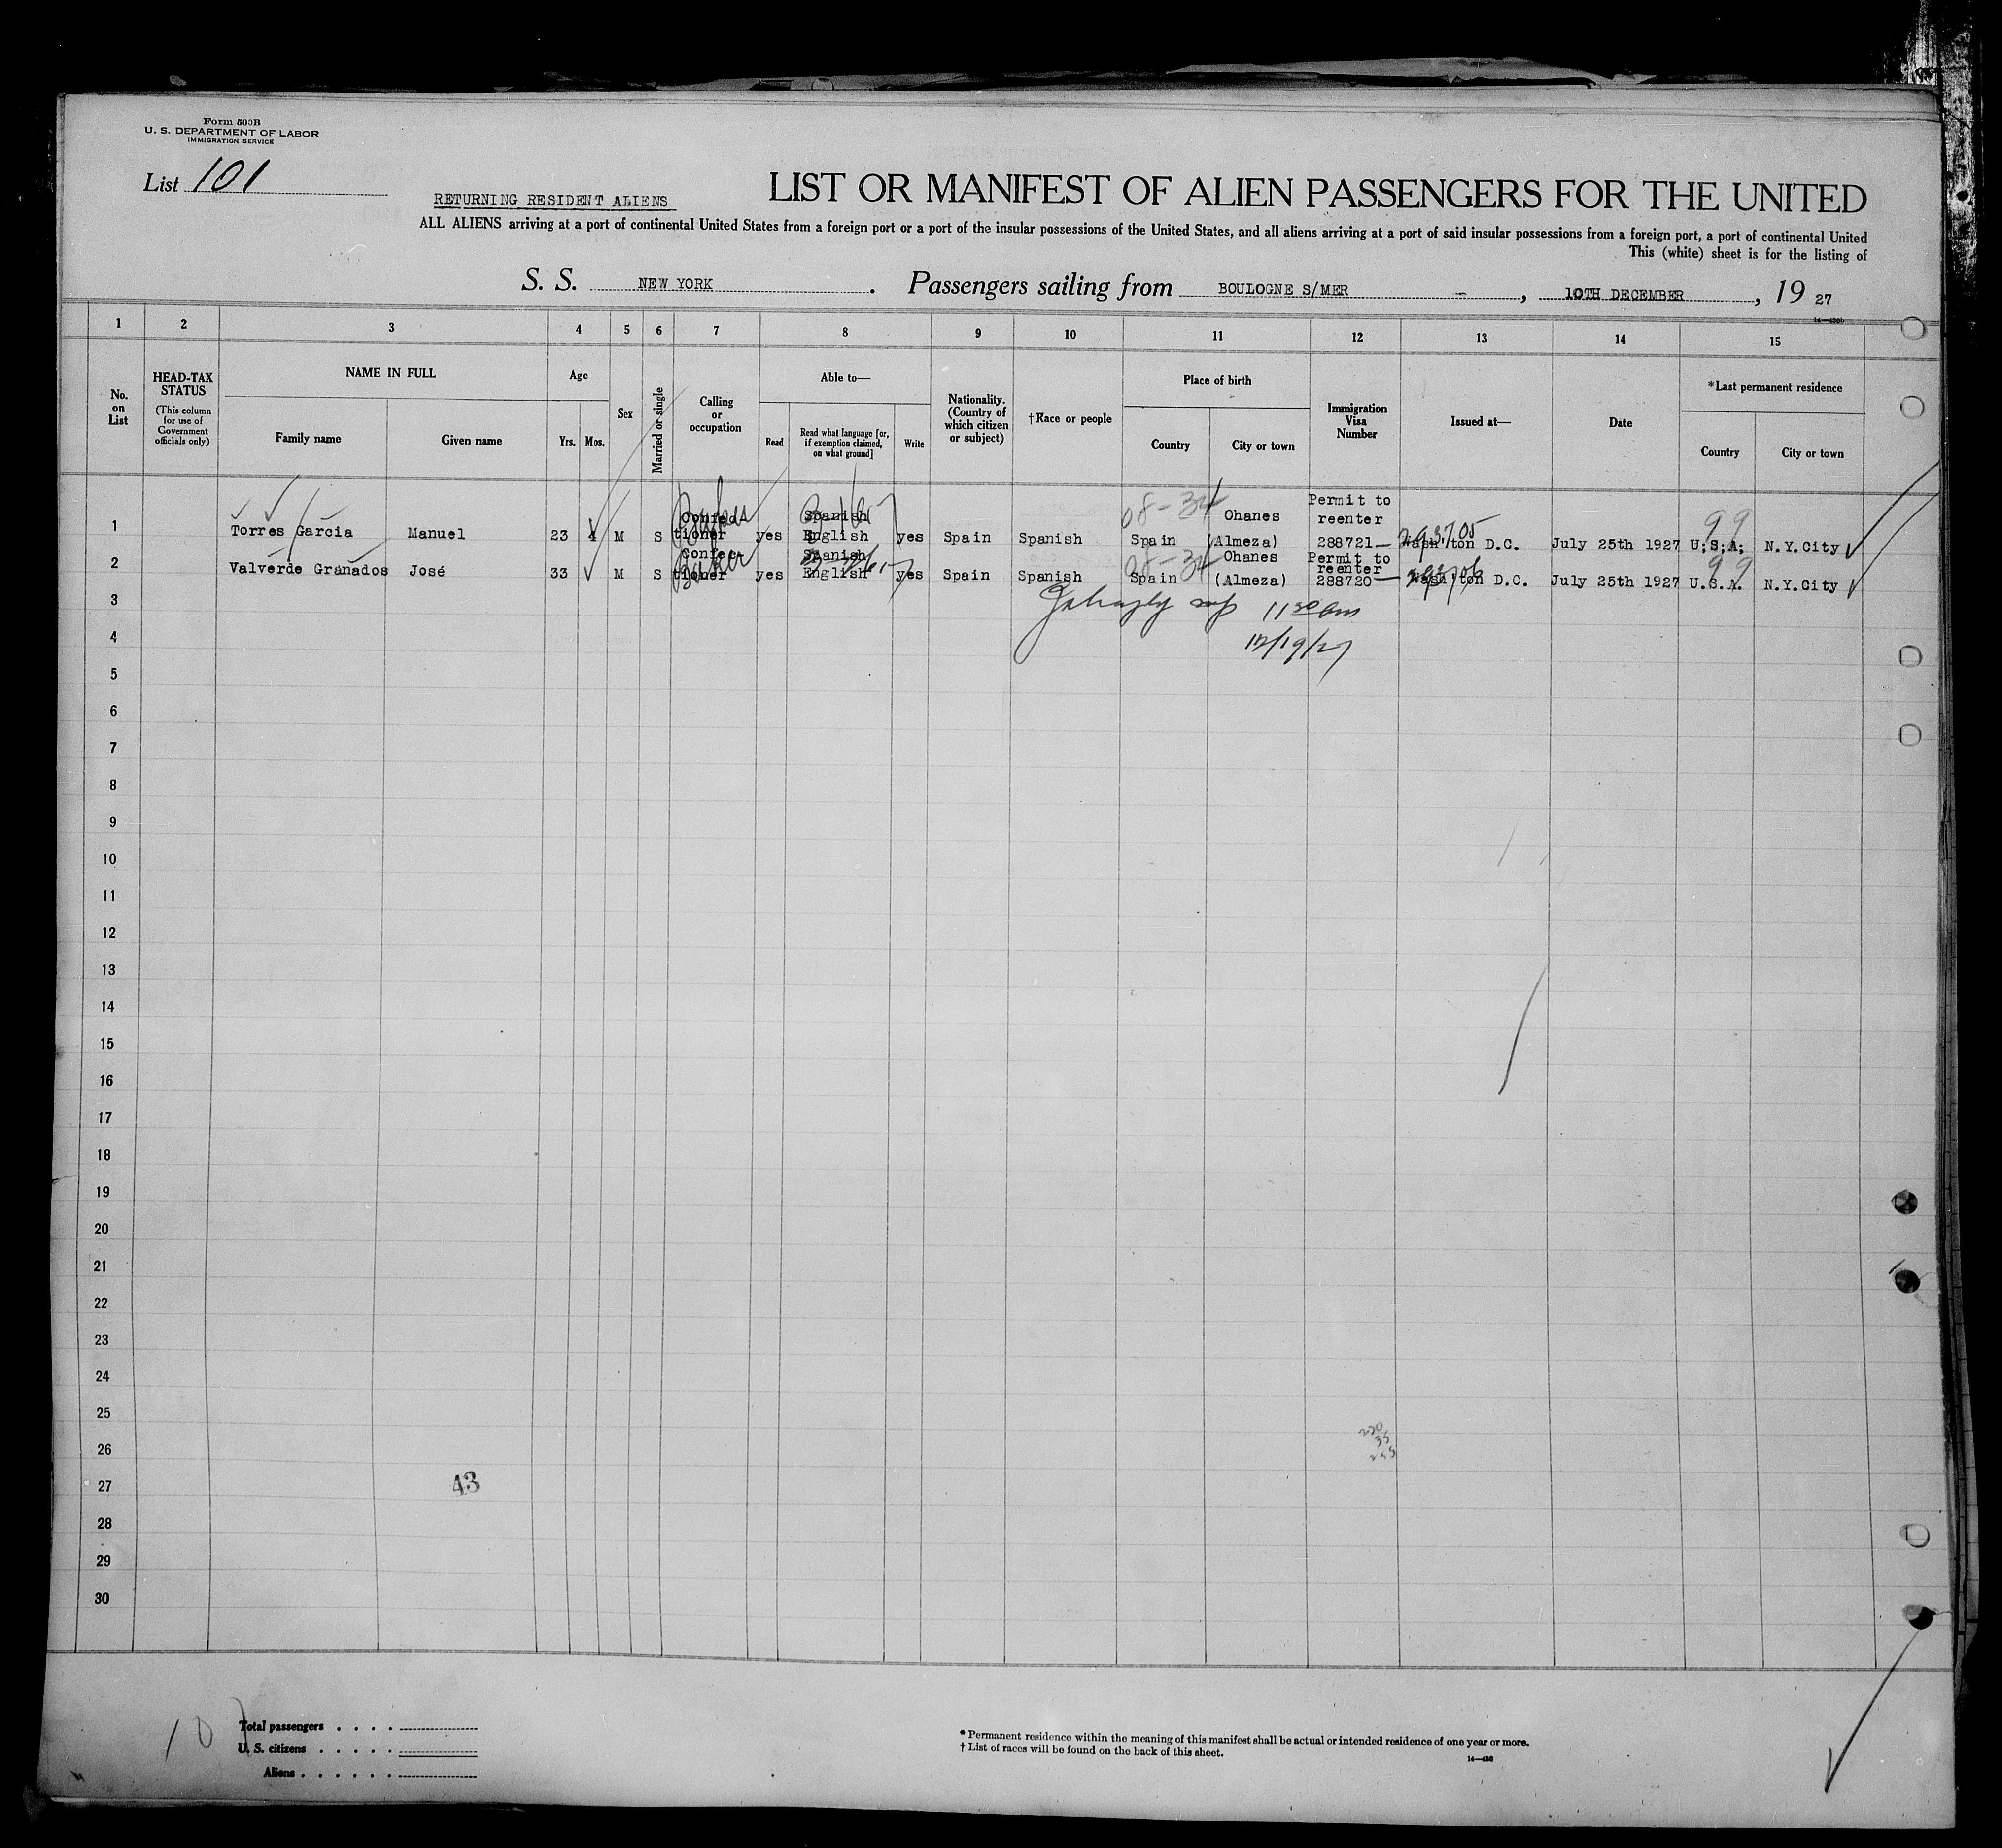 Form 500B
U. S. DEPARTMENT OF LABOR
IMMIGRATION SERVICE
List 101
RETURNING RESIDENT ALIENS
LIST OR MANIFEST OF ALIEN PASSENGERS FOR THE UNITED
ALL ALIENS arriving at a port of continental United States from a foreign port or a port of the insular possessions of the United States, and all aliens arriving at a port of said insular possessions from a foreign port, a port of continental United
This (white) sheet is for the listing of
S. S. NEW YORK. Passengers sailing from BOULOGNE S/MER, 10TH DECEMBER, 19 27
1 2 3 4 5 6 7 8 9 10 11 12 13 14 15
No. on List
HEAD-TAX STATUS
(This column for use of Government officials only)
NAME IN FULL
Family name
Given name
Age
Yrs.
Mos.
Sex
Married or single
Calling or occupation
Able to—
Read
Read what language [or, if exemption claimed, on what ground]
Write
Nationality. (Country of which citizen or subject)
†Race or people
Place of birth
Country
City or town
Immigration Visa Number
Issued at—
Date
*Last permanent residence
Country
City or town
1 Torres Garcia Manuel 23 M S Confec tioner Baker yes Spanish English yes Spain Spanish Spain 08-34 Ohanes (Almeza) Permit to reenter 288721— Wash'ton D.C. 293705 July 25th 1927 U;S;A; 99 N.Y.City
2 Valverde Granados José 33 M S Confec tioner Baker yes Spanish English yes Spain Spanish Spain 08-34 Ohanes (Almeza) Permit to reenter 288720— Wash'ton D.C. 293706 July 25th 1927 U.S.A. 99 N.Y.City
3 11 30 am
4 12/19/27
5
6
7
8
9
10
11
12
13
14
15
16
17
18
19
20
21
22
23
24
25
26
230
35
255
27
43
28
29
30
Total passengers . . . .
U. S. citizens . . . . .
Aliens . . . . . .
101
* Permanent residence within the meaning of this manifest shall be actual or intended residence of one year or more.
† List of races will be found on the back of this sheet.
14—430